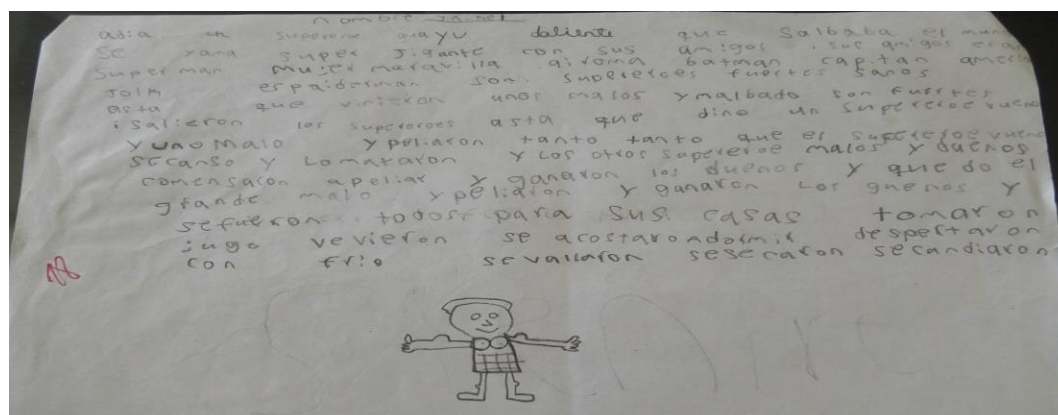 nombre
asia un superere guayu daliente que salbaba el mun
se yama super Jigante con sus amigos . sus amigos eran
Superman mujer maravilla airoma batman capitan america
Jolk espaiderman son supereroes fuertes sanos
asta que vinieron unos malos y malbado son fuertes
isalieron los supereroes asta que dino un supereroe vueno
y uno malo y peliaron tanto tanto que el supereroe vueno
se canso y lo mataron y los otros supereroe malos y buenos
comensaron apeliar y ganaron los buenos y que do el
grande malo y peliaron y ganaron los guenos y
se fueron todos para sus casas tomaron
jugo vevieron se acostaron dormir despertaron
con frio sevallaron sesecaron secandiaron
18